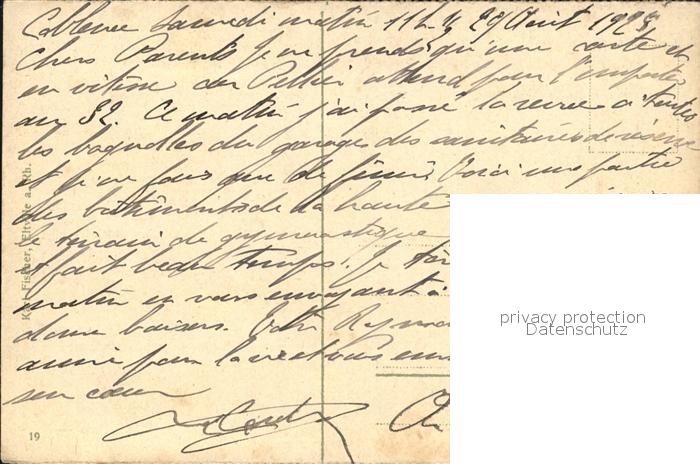 Coblence Samedi matin 11 h ½ 29 Août 1925
Chers Parents Je ne prends qu'une carte et
en vitesse car Pellier attend pour l'emporter
au 32. Ce matin j'ai passé la revue à toutes
les bagnolles du garage des sanitaires de réserve
et je ne fais que de finir. Voici une partie
des bâtiments de la haute
le terrain de gymnastique
et fait beau temps. Je
matin en vous envoyant
doux baisers. Votre
aimé pour la vie et vous
son cœur
Karl Fischer, Eltville a. Rh.
19
privacy protection
Datenschutz